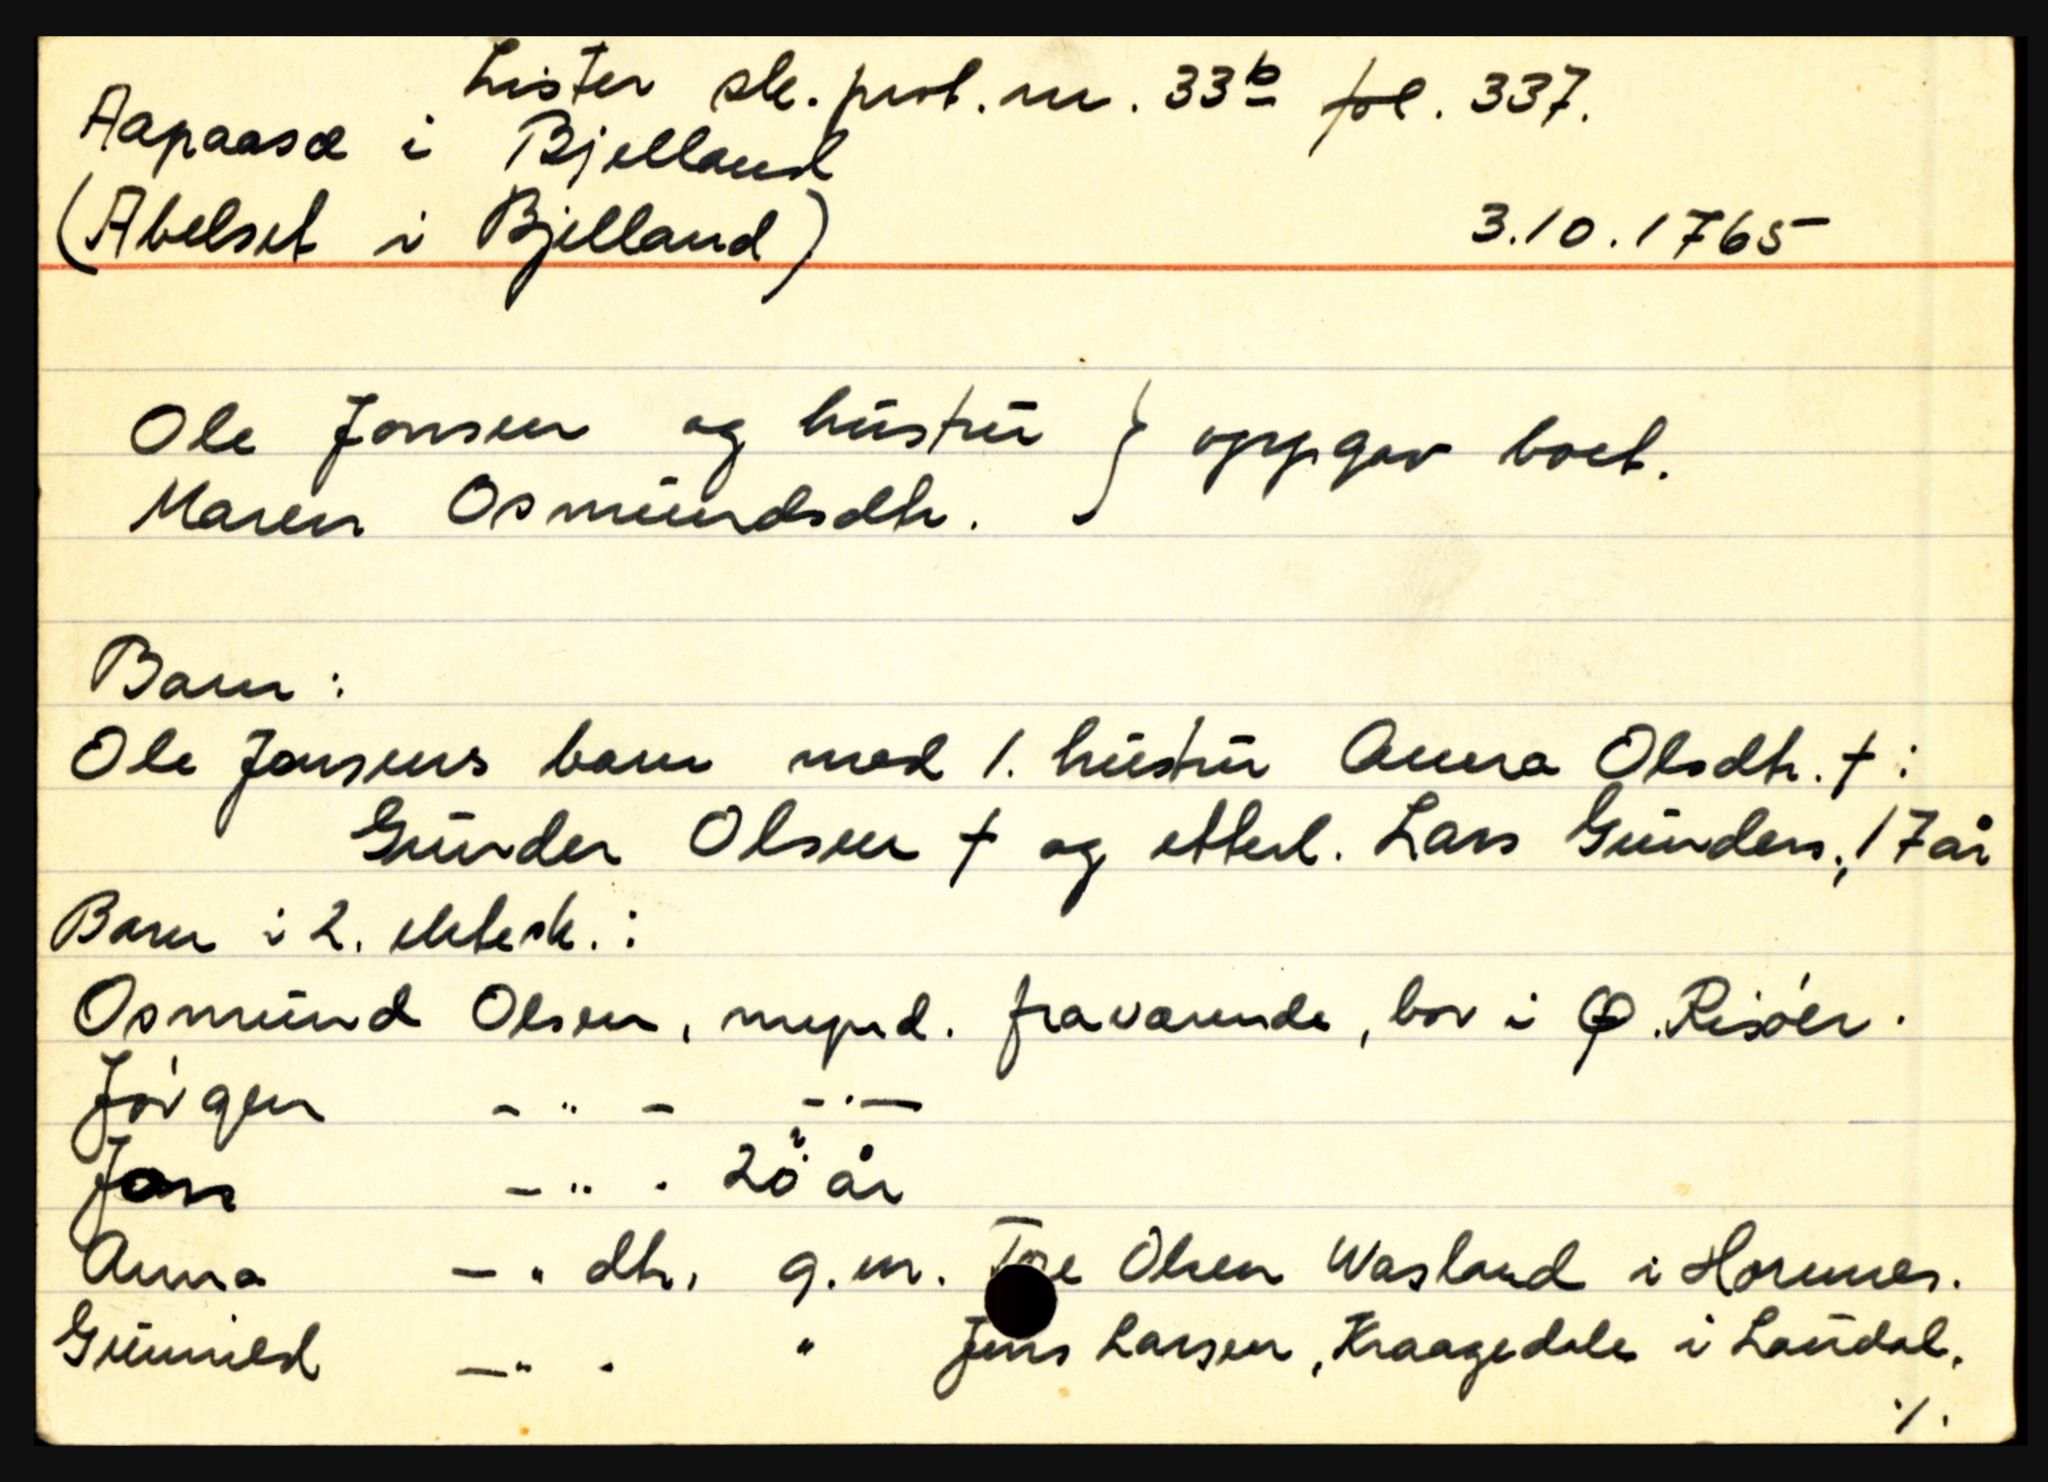 Lister sk. prot. nr. 33b fol. 337.
Aapaasæ i Bjelland
(Abelset i Bjelland) 3.10.1765
Ole Jonsen og hústrú } oppgav boet.
Maren Osmúndsdtr.
Barn:
Ole Jonsens barn med 1. hústrú Anna Olsdtr. †:
Gúnder Olsen † og etterl. Lars Gúnders, 17 år
Barn i 2. ektesk.:
Osmúnd Olsen, mynd. fraværende, bor i Ø. Risöer.
Jörgen - " - - " -
Jons - " - 20 år
Anna - " dtr. g.m. Tore Olsen Wasland i Hornnes.
Gúnnild - " - " Jens Larsen, Kraagedale i Laúdal.
./.